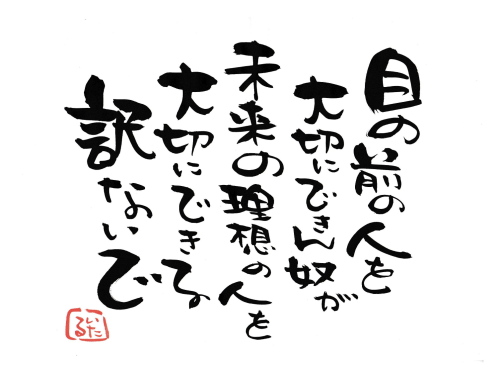 目の前の人を
大切にできん奴が
未来の理想の人を
大切にできる
訳ないで